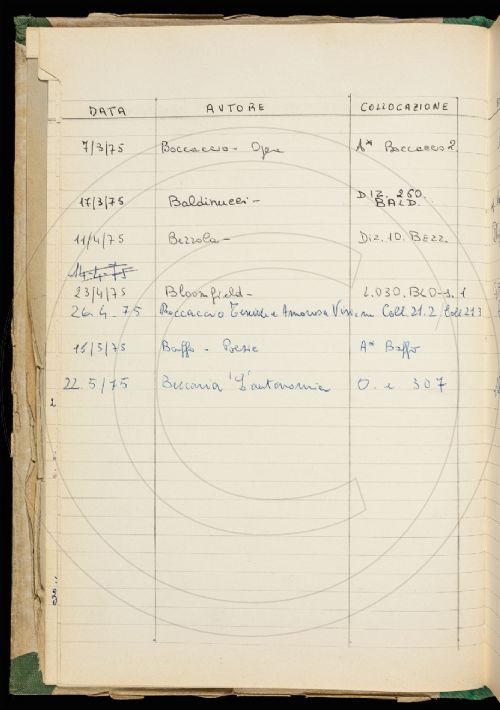 DATA AUTORE COLLOCAZIONE
7/3/75 Boccaccio - Opere A* Boccaccio 2.
17/3/75 Baldinucci - DIZ. 260. BALD.
11/4/75 Bezzola - DIZ. 10. BEZZ.
14-4-75
23/4/75 Bloomfield - L.030. BLO-s. 1
26. 4. 75 Boccaccio Teseida e Amorosa Visione Coll. 21.2 Coll 21 3
15/5/75 Baffo - Poesie A* Baffo
22. 5/75 Beccaria "L'autonomia O. e 307